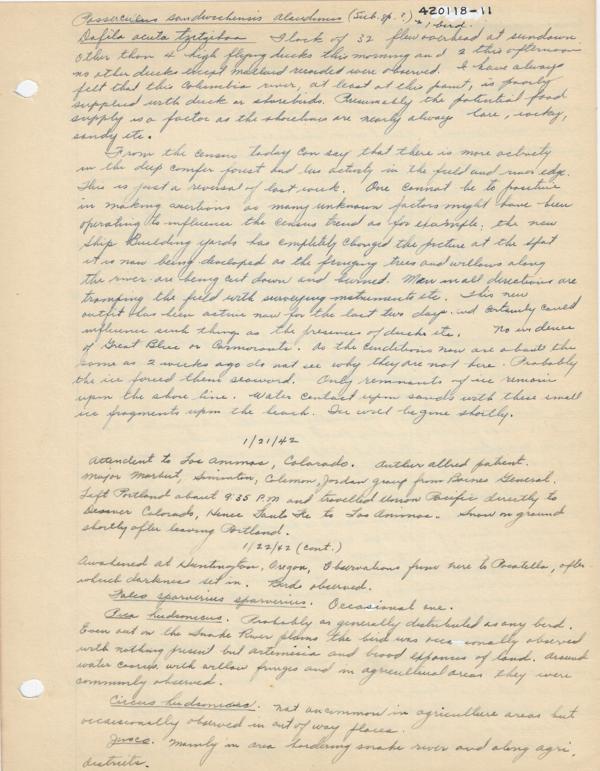 420118-11
Passerculus sandwichensis alaudinus (Sub. sp. ?) * 1 bird.
Dafila acuta tzitzihoa Flock of 32 flew overhead at sundown.
Other than 4 high flying ducks this morning and 2 this afternoon
no other ducks except mallard recorded were observed. I have always
felt that this Columbia river, at least at this point, is poorly
supplied with duck or shorebirds. Presumably the potential food
supply is a factor as the shorelines are nearly always bare, rocky,
sandy etc.
From the census today can say that there is more activity
in the deep conifer forest and less activity in the field and river edge.
This is just a reversal of last week. One cannot be to positive
in making assertions as many unknown factors might have been
operating to influence the census trend as for example, the new
Ship Building yards has completely changed the picture at the spot
it is now being developed as the fringing trees and willows along
the river are being cut down and burned. Men in all directions are
tramping the field with surveying instruments etc. This new
outfit has been active now for the last two days and certainly could
influence such things as the presence of ducks etc. No evidence
of Great Blue or Cormorants. As the conditions now are about the
same as 2 weeks ago do not see why they are not here. Probably
the ice forced them seaward. Only remnants of ice remain
upon the shore line. Water contact upon sands with these small
ice fragments upon the beach. Ice will be gone shortly.
1/21/42
Attendent to Los Animas, Colorado. Auther allred patient.
Major Market, Coleman, Jordan group from Barnes General.
Left Portland about 9:35 P.M and travelled Union Pacific directly to
Denver Colorado, Hence Santa Fe to Los Animas. Snow on ground
shortly after leaving Portland.
1/22/42 (cont.)
Awakened at Huntington, Oregon, Observations from here to Pocatella, after
which darkness set in. Birds observed.
Falco sparverius sparverius. Occasional one.
Pica hudsonicus. Probably as generally distributed as any bird.
Even out on the Snake River plains the bird was occasionally observed
with nothing present but artemisia and broad expanses of land. Around
water courses with willow fringes and in agricultural areas they were
commonly observed.
Circus hudsonicus. Not uncommon in agriculture areas but
occassionally observed in out of way places.
Junco. Mainly in area bordering snake river and along agri.
districts.